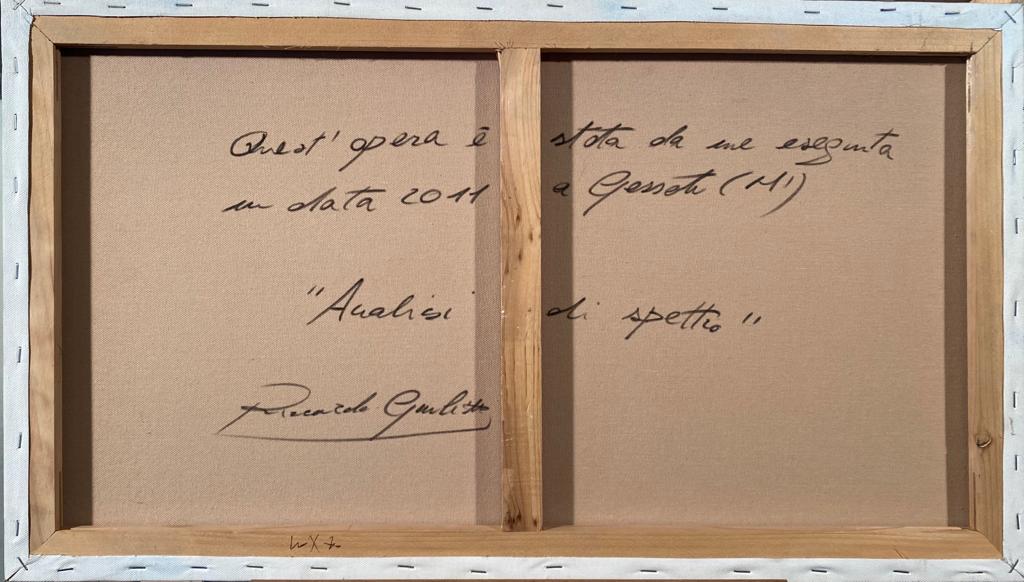 Quest' opera è stata da me eseguita
in data 2011 a Gessate (MI)
"Analisi di spettro"
Riccardo